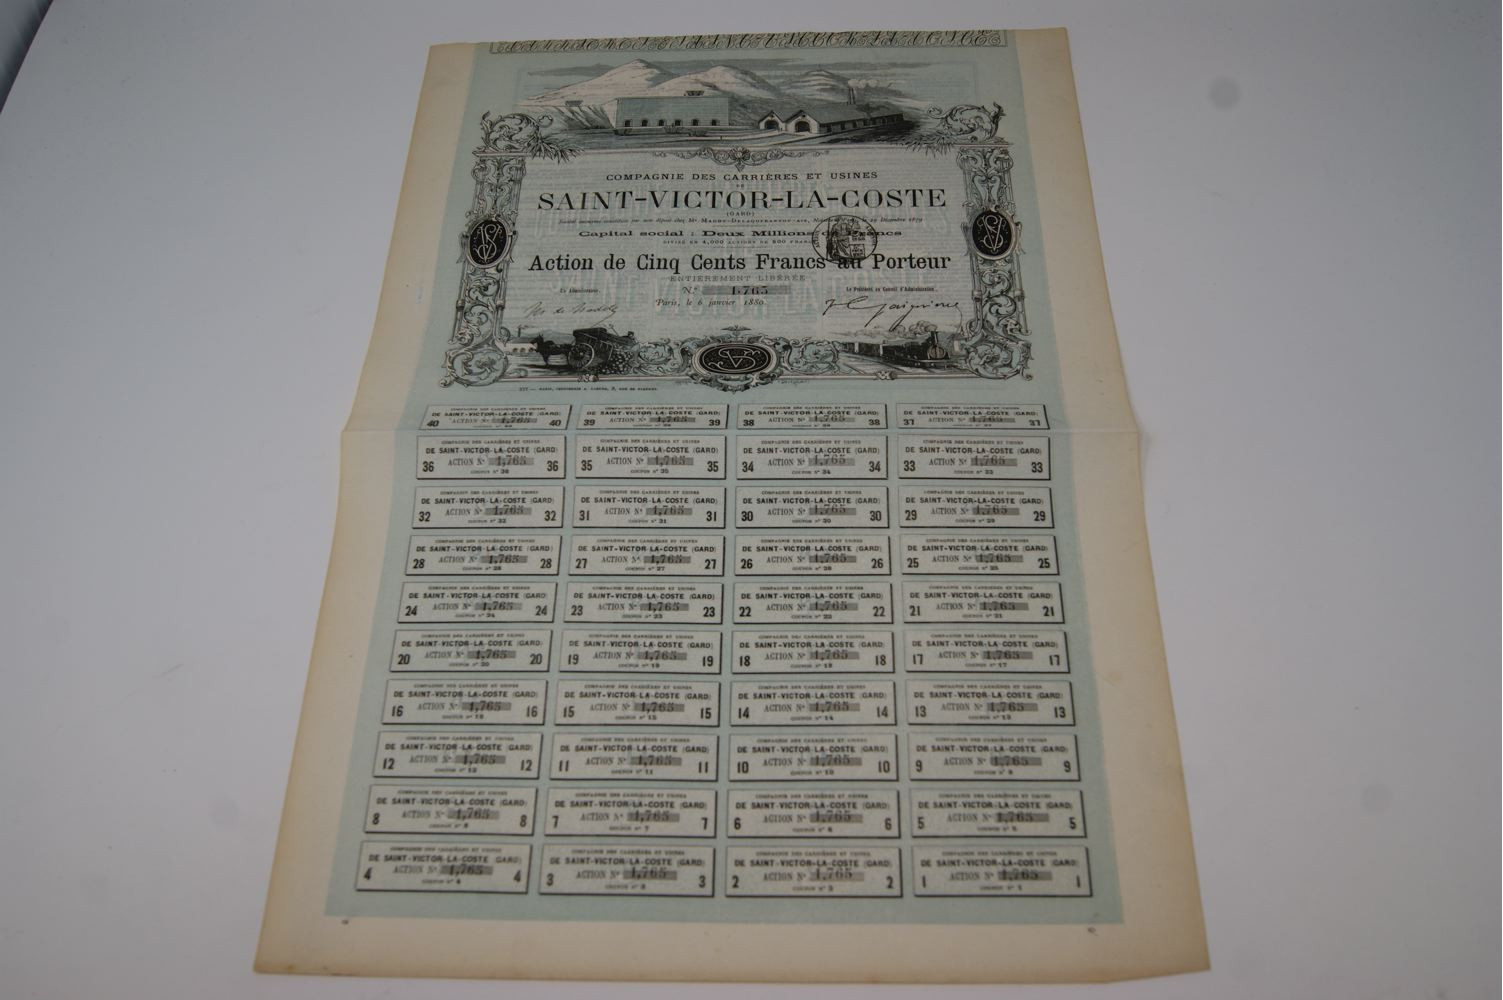 COMPAGNIE DES CARRIÈRES ET USINES
DE
SAINT-VICTOR-LA-COSTE
(GARD)
Société anonyme constituée par acte déposé chez Me Notaire le 29 Décembre 1879
Capital social : Deux Millions de Francs
DIVISÉ EN 4,000 ACTIONS DE 500 FRANCS
Action de Cinq Cents Francs au Porteur
ENTIÈREMENT LIBÉRÉE
Un Administrateur, Le Président du Conseil d'Administration,
N° 1,765
Paris, le 6 janvier 1880.
COMPAGNIE DES CARRIÈRES ET USINES COMPAGNIE DES CARRIÈRES ET USINES COMPAGNIE DES CARRIÈRES ET USINES COMPAGNIE DES CARRIÈRES ET USINES
DE SAINT-VICTOR-LA-COSTE (GARD) DE SAINT-VICTOR-LA-COSTE (GARD) DE SAINT-VICTOR-LA-COSTE (GARD) DE SAINT-VICTOR-LA-COSTE (GARD)
40 ACTION N° 1,765 40 39 ACTION N° 1,765 39 38 ACTION N° 1,765 38 37 ACTION N° 1,765 37
COMPAGNIE DES CARRIÈRES ET USINES COMPAGNIE DES CARRIÈRES ET USINES COMPAGNIE DES CARRIÈRES ET USINES COMPAGNIE DES CARRIÈRES ET USINES
DE SAINT-VICTOR-LA-COSTE (GARD) DE SAINT-VICTOR-LA-COSTE (GARD) DE SAINT-VICTOR-LA-COSTE (GARD) DE SAINT-VICTOR-LA-COSTE (GARD)
36 ACTION N° 1,765 36 35 ACTION N° 1,765 35 34 ACTION N° 1,765 34 33 ACTION N° 1,765 33
COUPON N° 36 COUPON N° 35 COUPON N° 34 COUPON N° 33
COMPAGNIE DES CARRIÈRES ET USINES COMPAGNIE DES CARRIÈRES ET USINES COMPAGNIE DES CARRIÈRES ET USINES COMPAGNIE DES CARRIÈRES ET USINES
DE SAINT-VICTOR-LA-COSTE (GARD) DE SAINT-VICTOR-LA-COSTE (GARD) DE SAINT-VICTOR-LA-COSTE (GARD) DE SAINT-VICTOR-LA-COSTE (GARD)
32 ACTION N° 1,765 32 31 ACTION N° 1,765 31 30 ACTION N° 1,765 30 29 ACTION N° 1,765 29
COUPON N° 32 COUPON N° 31 COUPON N° 30 COUPON N° 29
COMPAGNIE DES CARRIÈRES ET USINES COMPAGNIE DES CARRIÈRES ET USINES COMPAGNIE DES CARRIÈRES ET USINES COMPAGNIE DES CARRIÈRES ET USINES
DE SAINT-VICTOR-LA-COSTE (GARD) DE SAINT-VICTOR-LA-COSTE (GARD) DE SAINT-VICTOR-LA-COSTE (GARD) DE SAINT-VICTOR-LA-COSTE (GARD)
28 ACTION N° 1,765 28 27 ACTION N° 1,765 27 26 ACTION N° 1,765 26 25 ACTION N° 1,765 25
COUPON N° 28 COUPON N° 27 COUPON N° 26 COUPON N° 25
COMPAGNIE DES CARRIÈRES ET USINES COMPAGNIE DES CARRIÈRES ET USINES COMPAGNIE DES CARRIÈRES ET USINES COMPAGNIE DES CARRIÈRES ET USINES
DE SAINT-VICTOR-LA-COSTE (GARD) DE SAINT-VICTOR-LA-COSTE (GARD) DE SAINT-VICTOR-LA-COSTE (GARD) DE SAINT-VICTOR-LA-COSTE (GARD)
24 ACTION N° 1,765 24 23 ACTION N° 1,765 23 22 ACTION N° 1,765 22 21 ACTION N° 1,765 21
COUPON N° 24 COUPON N° 23 COUPON N° 22 COUPON N° 21
COMPAGNIE DES CARRIÈRES ET USINES COMPAGNIE DES CARRIÈRES ET USINES COMPAGNIE DES CARRIÈRES ET USINES COMPAGNIE DES CARRIÈRES ET USINES
DE SAINT-VICTOR-LA-COSTE (GARD) DE SAINT-VICTOR-LA-COSTE (GARD) DE SAINT-VICTOR-LA-COSTE (GARD) DE SAINT-VICTOR-LA-COSTE (GARD)
20 ACTION N° 1,765 20 19 ACTION N° 1,765 19 18 ACTION N° 1,765 18 17 ACTION N° 1,765 17
COUPON N° 20 COUPON N° 19 COUPON N° 18 COUPON N° 17
COMPAGNIE DES CARRIÈRES ET USINES COMPAGNIE DES CARRIÈRES ET USINES COMPAGNIE DES CARRIÈRES ET USINES COMPAGNIE DES CARRIÈRES ET USINES
DE SAINT-VICTOR-LA-COSTE (GARD) DE SAINT-VICTOR-LA-COSTE (GARD) DE SAINT-VICTOR-LA-COSTE (GARD) DE SAINT-VICTOR-LA-COSTE (GARD)
16 ACTION N° 1,765 16 15 ACTION N° 1,765 15 14 ACTION N° 1,765 14 13 ACTION N° 1,765 13
COUPON N° 16 COUPON N° 15 COUPON N° 14 COUPON N° 13
COMPAGNIE DES CARRIÈRES ET USINES COMPAGNIE DES CARRIÈRES ET USINES COMPAGNIE DES CARRIÈRES ET USINES COMPAGNIE DES CARRIÈRES ET USINES
DE SAINT-VICTOR-LA-COSTE (GARD) DE SAINT-VICTOR-LA-COSTE (GARD) DE SAINT-VICTOR-LA-COSTE (GARD) DE SAINT-VICTOR-LA-COSTE (GARD)
12 ACTION N° 1,765 12 11 ACTION N° 1,765 11 10 ACTION N° 1,765 10 9 ACTION N° 1,765 9
COUPON N° 12 COUPON N° 11 COUPON N° 10 COUPON N° 9
COMPAGNIE DES CARRIÈRES ET USINES COMPAGNIE DES CARRIÈRES ET USINES COMPAGNIE DES CARRIÈRES ET USINES COMPAGNIE DES CARRIÈRES ET USINES
DE SAINT-VICTOR-LA-COSTE (GARD) DE SAINT-VICTOR-LA-COSTE (GARD) DE SAINT-VICTOR-LA-COSTE (GARD) DE SAINT-VICTOR-LA-COSTE (GARD)
8 ACTION N° 1,765 8 7 ACTION N° 1,765 7 6 ACTION N° 1,765 6 5 ACTION N° 1,765 5
COUPON N° 8 COUPON N° 7 COUPON N° 6 COUPON N° 5
COMPAGNIE DES CARRIÈRES ET USINES COMPAGNIE DES CARRIÈRES ET USINES COMPAGNIE DES CARRIÈRES ET USINES COMPAGNIE DES CARRIÈRES ET USINES
DE SAINT-VICTOR-LA-COSTE (GARD) DE SAINT-VICTOR-LA-COSTE (GARD) DE SAINT-VICTOR-LA-COSTE (GARD) DE SAINT-VICTOR-LA-COSTE (GARD)
4 ACTION N° 1,765 4 3 ACTION N° 1,765 3 2 ACTION N° 1,765 2 1 ACTION N° 1,765 1
COUPON N° 4 COUPON N° 3 COUPON N° 2 COUPON N° 1